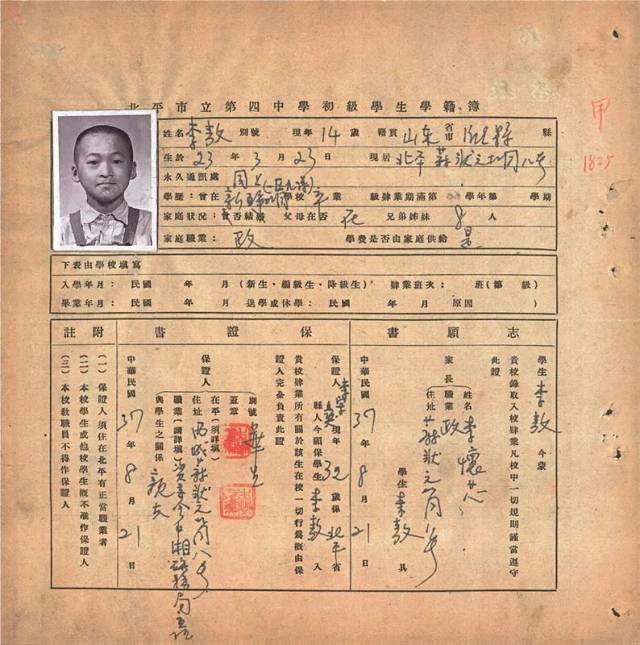 北平市立第四中學初級學生學籍簿
姓名 李敖 別號 現年 14 歲 籍貫 山東 省市 縣
生於 23 年 3 月 23 日 現居 北平 蘇狀元胡同八號
永久通訊處 同上
學歷：曾在 學校 業 級肄業期滿第 學年第 學期
家庭狀況：曾否結婚 父母在否 在 兄弟姊妹 8 人
家庭職業：政 學費是否由家庭供給 是
下表由學校填寫
入學年月：民國 年 月（新生・編級生・降級生）肄業班次：班（第 級）
畢業年月：民國 年 月 退學或休學：民國 年 月 原因（ ）
志願書
學生 李敖 今蒙
貴校錄取入校肄業凡校中一切規則謹當遵守
此證
家長 姓名 李
職業 政
住址 蘇狀元胡同八號
學生 李敖 具
中華民國 37 年 8 月 21 日
保證書
保證人 現年 32 歲係 北平 省
縣人今願保學生 李敖 入
貴校肄業所有關於該生在校一切行為概由保
證人完全負責此證
保證人
別號
蓋章
在平（須詳填）
住址 西城蘇狀元胡同八號
職業（須詳填）
與學生之關係 親友
中華民國 37 年 8 月 21 日
附註
（一）保證人須住在北平有正當職業者
（二）本校學生或他校學生概不准作保證人
（三）本校教職員不得作保證人
甲
1825